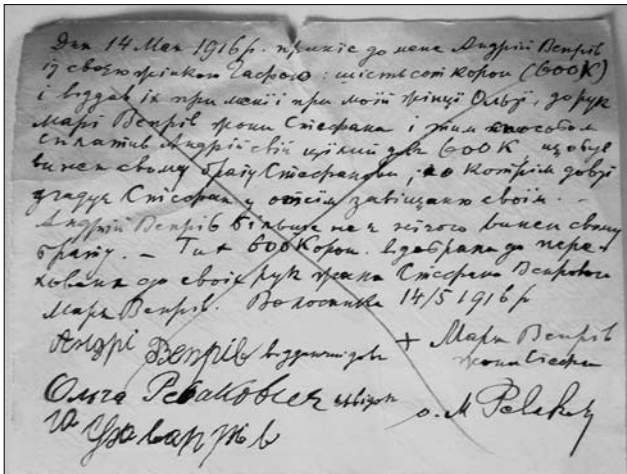 Дня 14 Мая 1916р. приніс до мене Андрій Вепрів
із своєю жінкою : шістьсот корон (600 К)
і віддав їх при мені і при моїй жінці Ользі, до рук
Марі Вепрів жони Стефана і тим способом
сплатив Андрій свій цілий довг 600 К що був
винен свому брату Стефанови, по котрім довзі
згадує Стефан у отсім завіщаню своїм. -
Андрій Вепрів більше не є нічого винен свому
брату. - Тих 600 Корон. відобрала до перехо-
ваня до своїх рук жена Стефана Вепрового
Мария Вепрів. Волосянка 14/5 1916 р
Андрі Вепрів
+ Мария Вепрів
жони Стефана
Ольга свідок
о. М